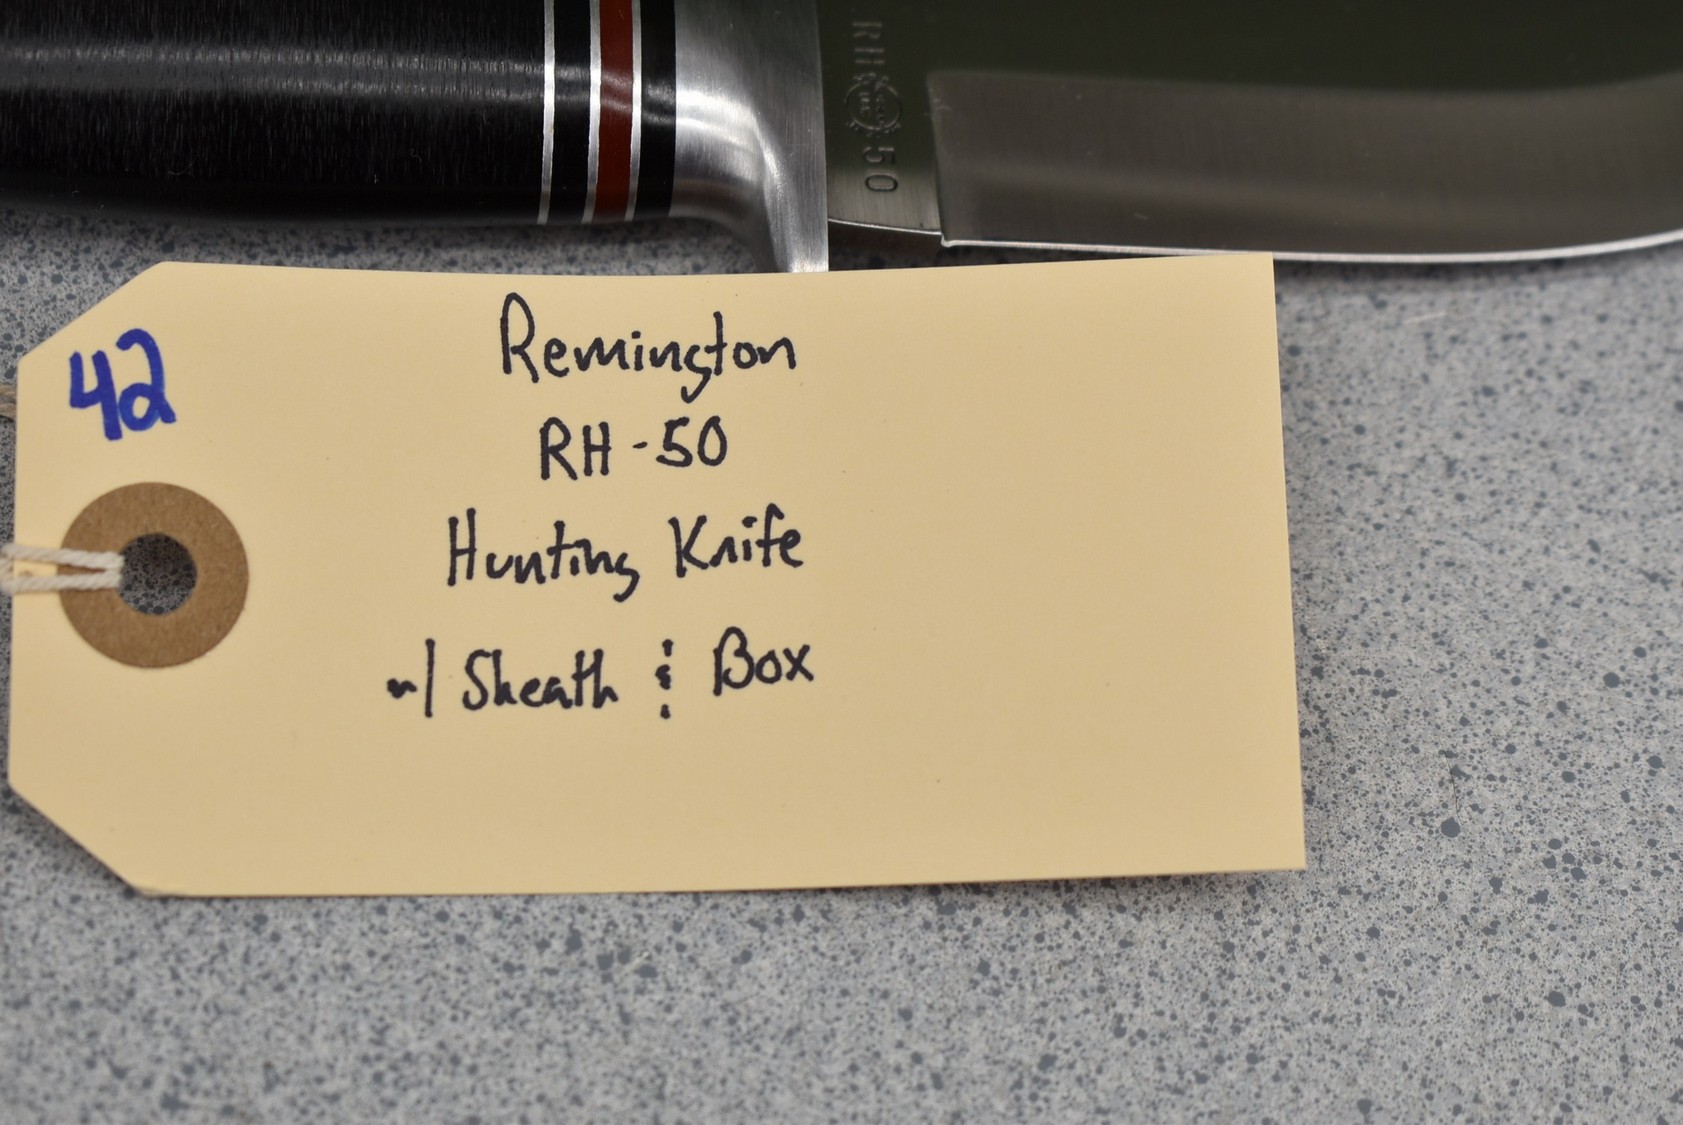 RH 50
42
Remington
RH-50
Hunting Knife
w/ Sheath & Box